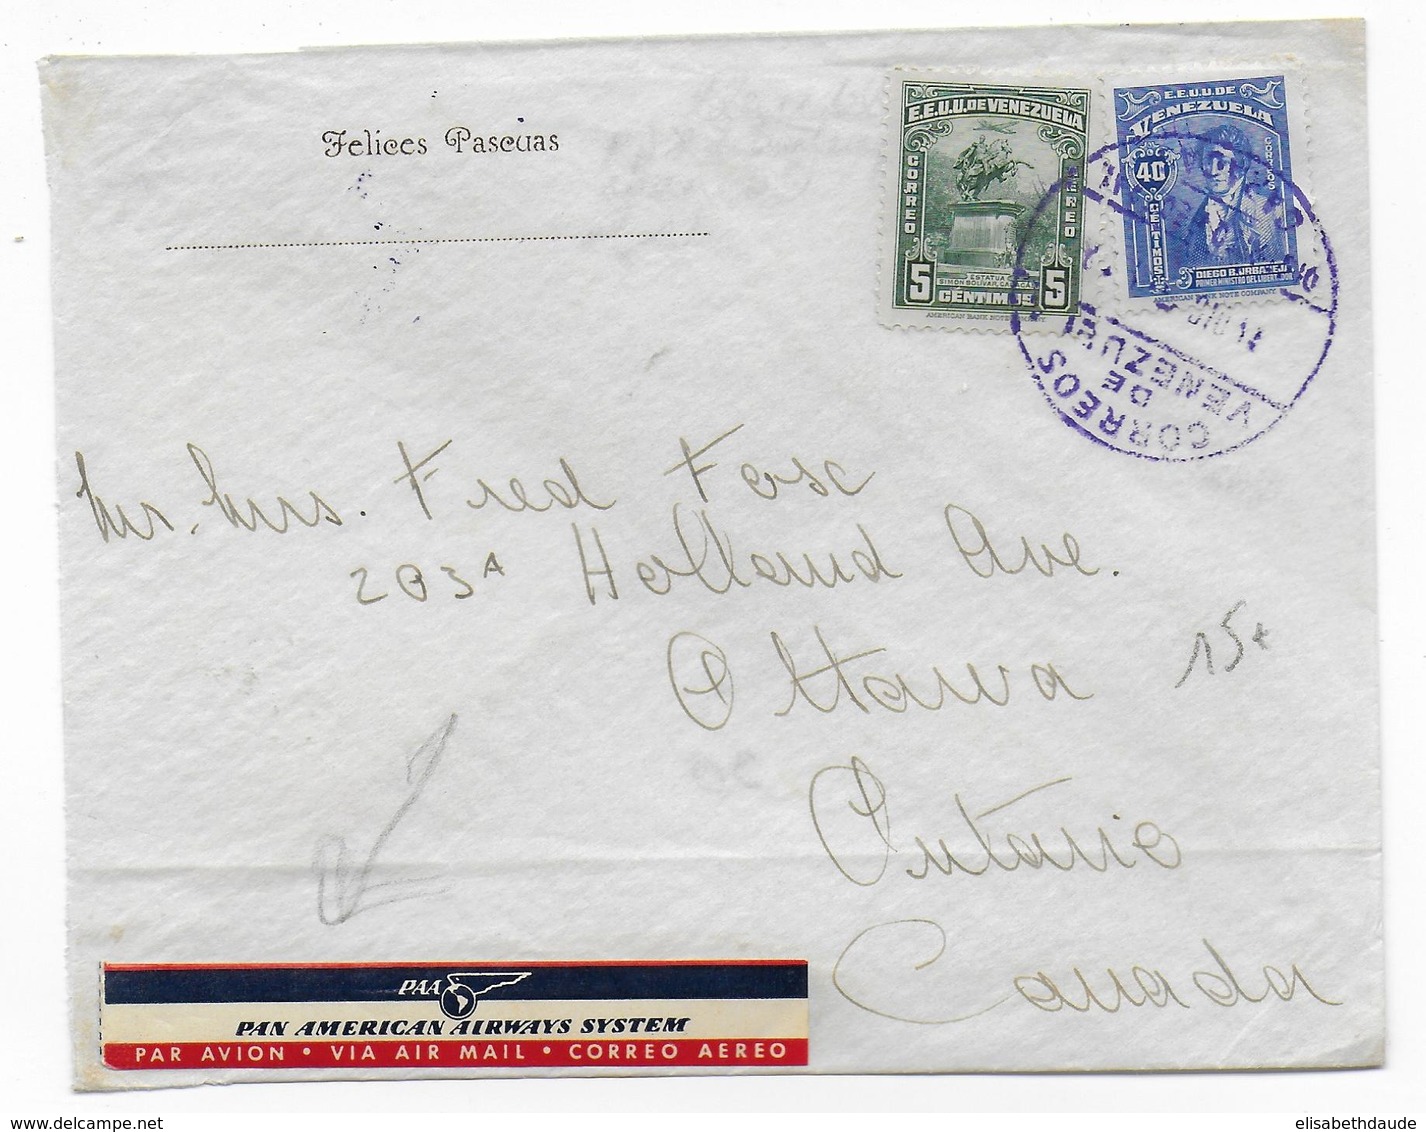 Felices Pascuas
E.E.U.U. DE VENEZUELA
CORREO
AEREO
ESTATUA
SIMON BOLIVAR, CARACAS
5 CÉNTIMOS 5
AMERICAN BANK NOTE COMPANY
E.E.U.U. DE
VENEZUELA
CORREOS
40
CÉNTIMOS
DIEGO B. URBANEJA
PRIMER MINISTRO DEL LIBERTADOR
AMERICAN BANK NOTE COMPANY
CORREOS
DE
VENEZUELA
DIC 14
Mr. Mrs. Fred
203A Holland Ave.
Ottawa
15
Ontario
Canada
PAA
PAN AMERICAN AIRWAYS SYSTEM
PAR AVION • VIA AIR MAIL • CORREO AEREO
delcampe.net
elisabethdaude